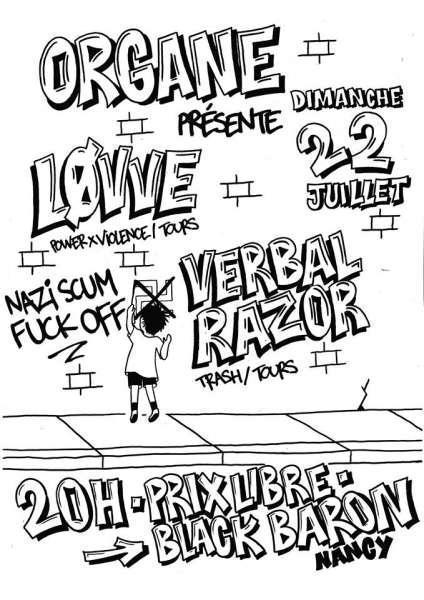 ORGANE
PRÉSENTE
DIMANCHE
22
JUILLET
LØVVE
POWERXVIOLENCE/TOURS
NAZI SCUM
FUCK OFF
VERBAL
RAZOR
TRASH/TOURS
20H·PRIX LIBRE·
BLACK BARON
NANCY